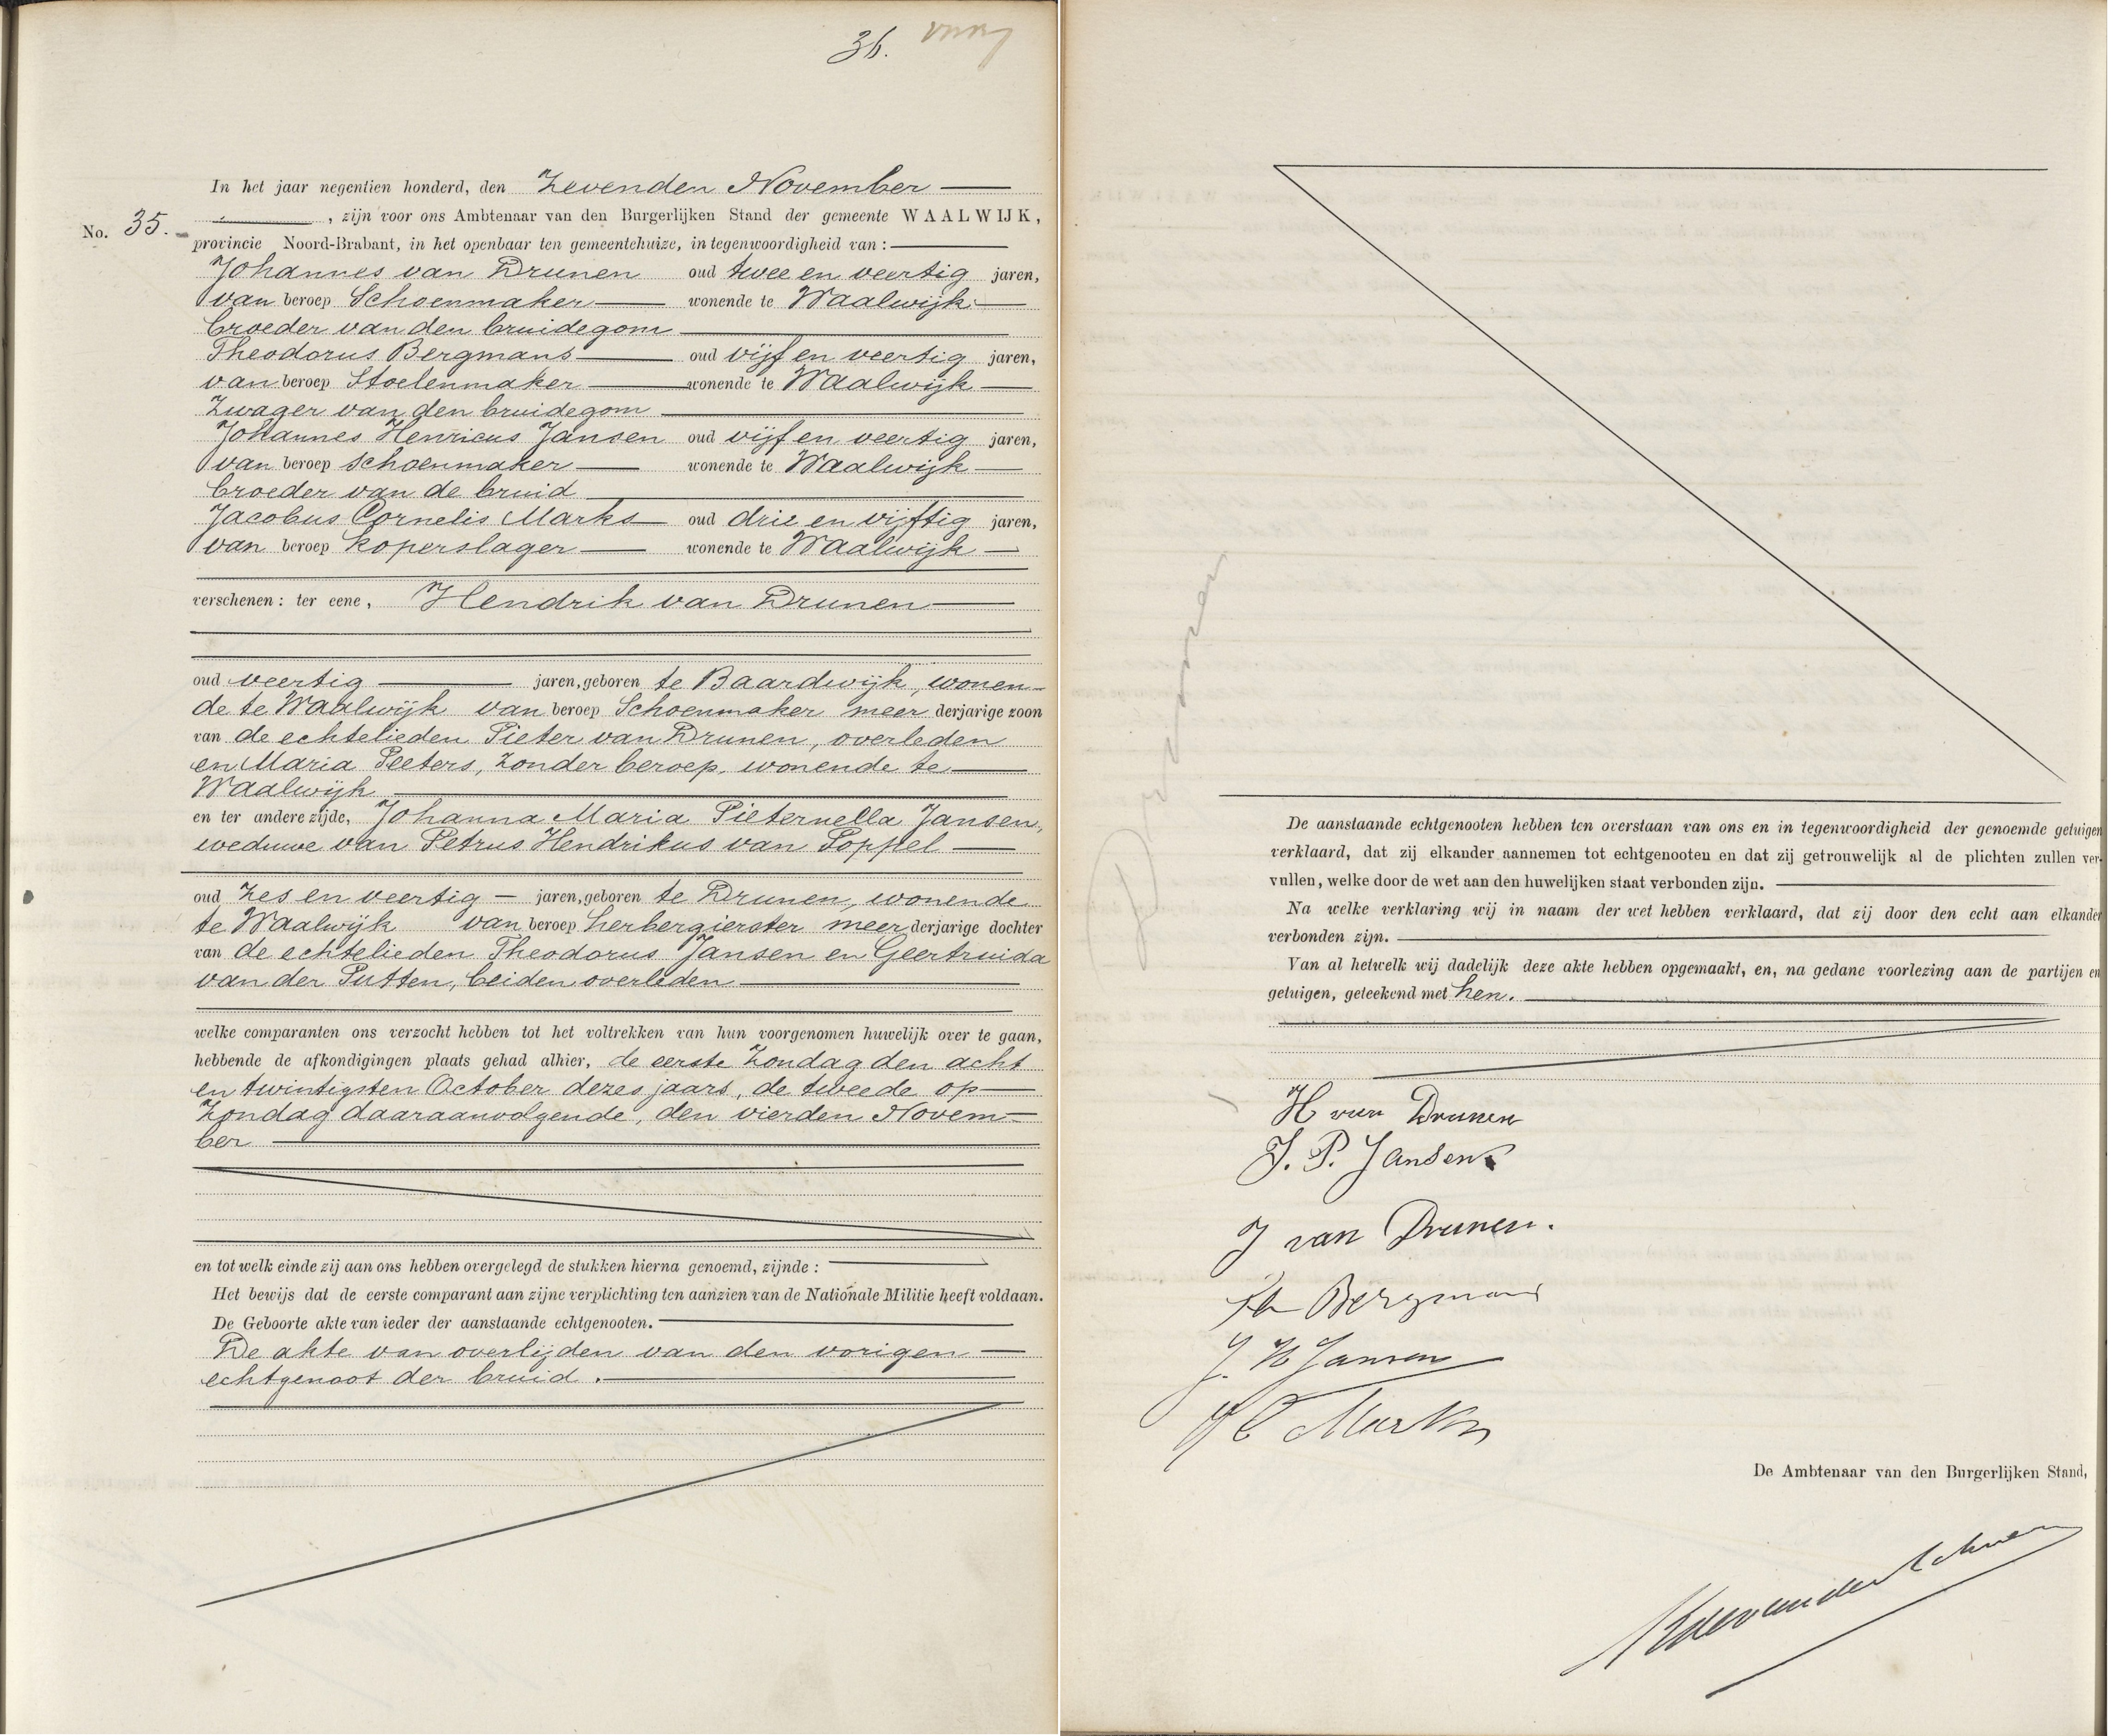 36.
No. 35.
In het jaar negentien honderd, den Zevenden November
, zijn voor ons Ambtenaar van den Burgerlijken Stand der gemeente WAALWIJK,
provincie Noord-Brabant, in het openbaar ten gemeentehuize, in tegenwoordigheid van:
Johannes van Drunen oud twee en veertig jaren,
van beroep Schoenmaker wonende te Waalwijk
broeder van den bruidegom
Theodorus Bergmans oud vijf en veertig jaren,
van beroep Stoelenmaker wonende te Waalwijk
Zwager van den bruidegom
Johannes Henricus Jansen oud vijf en veertig jaren,
van beroep schoenmaker wonende te Waalwijk
broeder van de bruid
Jacobus Cornelis Marks oud drie en vijftig jaren,
van beroep koperslager wonende te Waalwijk
verschenen: ter eene, Hendrik van Drunen
oud veertig jaren, geboren te Baardwijk, wonen-
de te Waalwijk van beroep Schoenmaker meer derjarige zoon
van de echtelieden Pieter van Drunen, overleden
en Maria Peeters, zonder beroep, wonende te
Waalwijk
en ter andere zijde, Johanna Maria Pieternella Jansen,
weduwe van Petrus Hendrikus van Poppel
oud zes en veertig jaren, geboren te Drunen, wonende
te Waalwijk van beroep herbergierster meer derjarige dochter
van de echtelieden Theodorus Jansen en Geertruida
van der Putten, beiden overleden
welke comparanten ons verzocht hebben tot het voltrekken van hun voorgenomen huwelijk over te gaan,
hebbende de afkondigingen plaats gehad alhier, de eerste Zondag den acht
en twintigsten October dezes jaars, de tweede op
Zondag daaraanvolgende, den vierden Novem=
ber
en tot welk einde zij aan ons hebben overgelegd de stukken hierna genoemd, zijnde:
Het bewijs dat de eerste comparant aan zijne verplichting ten aanzien van de Nationale Militie heeft voldaan.
De Geboorte akte van ieder der aanstaande echtgenooten.
De akte van overlijden van den vorigen
echtgenoot der bruid.
De aanstaande echtgenooten hebben ten overstaan van ons en in tegenwoordigheid der genoemde getuigen
verklaard, dat zij elkander aannemen tot echtgenooten en dat zij getrouwelijk al de plichten zullen ver-
vullen, welke door de wet aan den huwelijken staat verbonden zijn.
Na welke verklaring wij in naam der wet hebben verklaard, dat zij door den echt aan elkander
verbonden zijn.
Van al hetwelk wij dadelijk deze akte hebben opgemaakt, en, na gedane voorlezing aan de partijen en
getuigen, geteekend met hen.
H van Drunen
J. P. Jansen
J van Drunen.
Th Bergmans
J. H Jansen
J C Marks
De Ambtenaar van den Burgerlijken Stand,